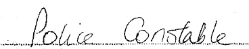 Police Constable